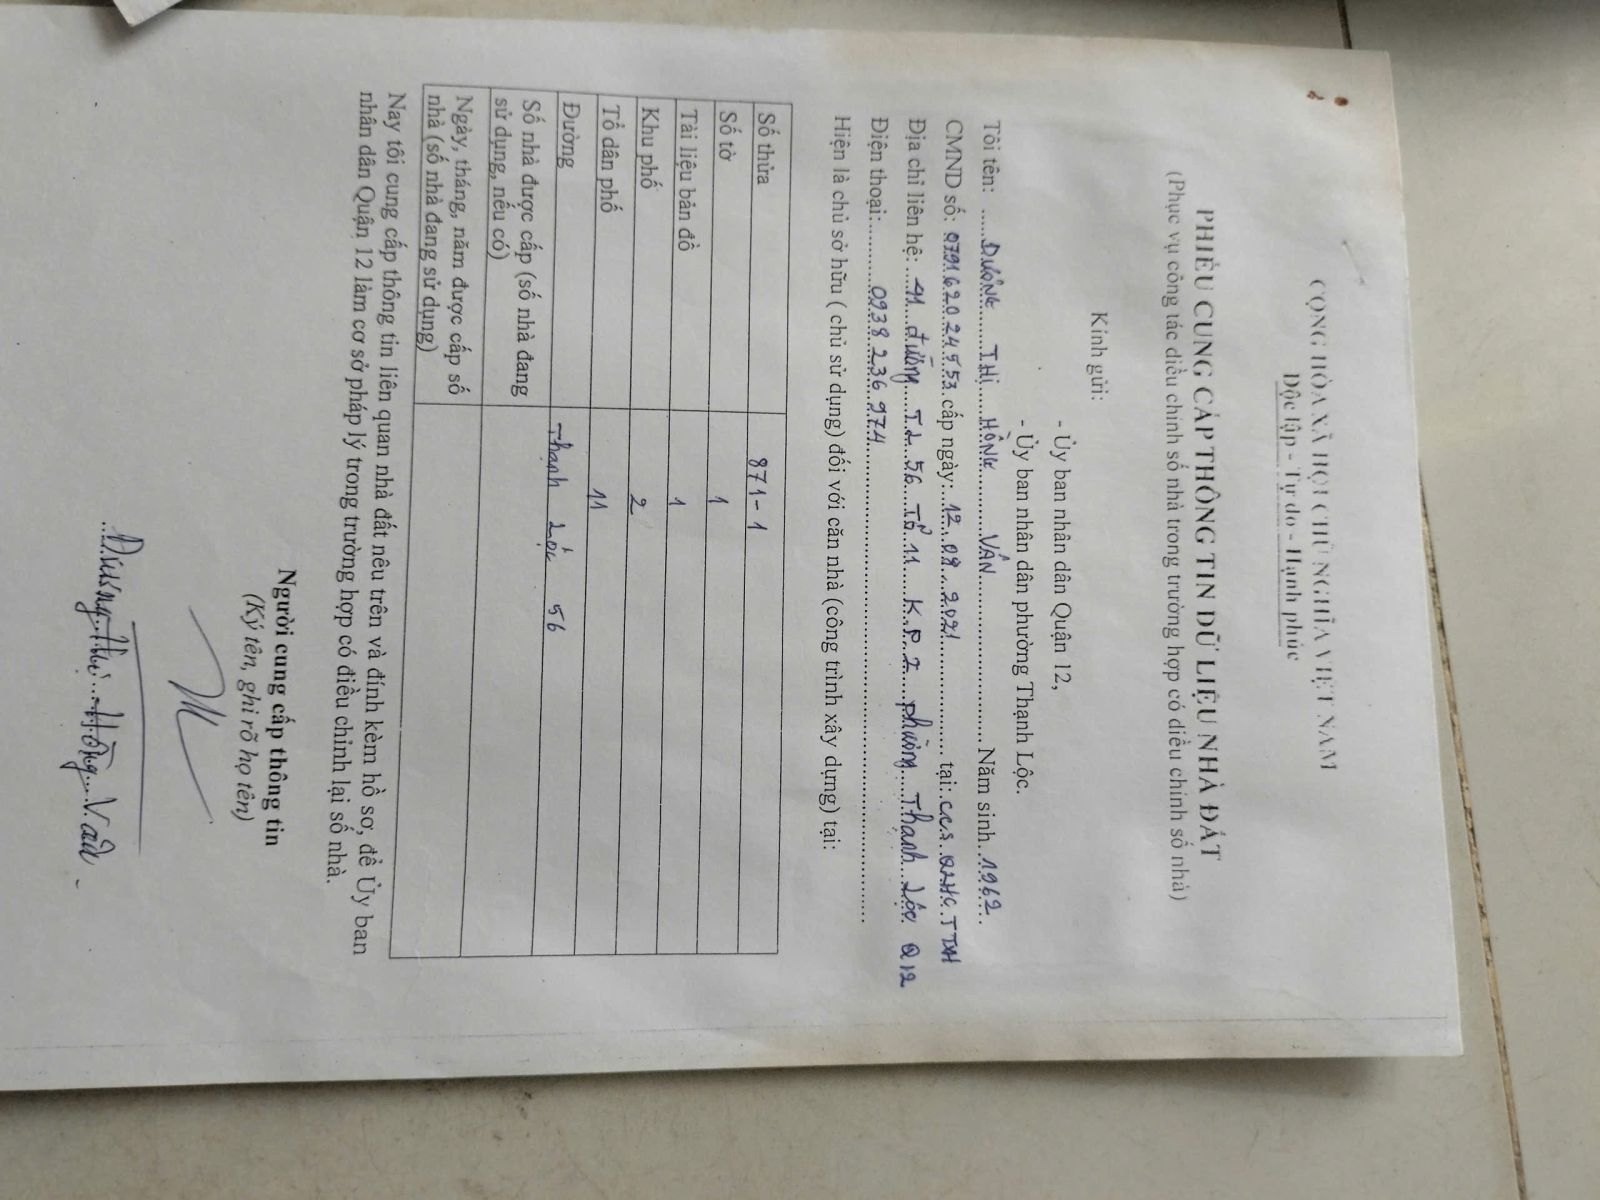 CỘNG HÒA XÃ HỘI CHỦ NGHĨA VIỆT NAM
Độc lập - Tự do - Hạnh phúc
PHIẾU CUNG CẤP THÔNG TIN DỮ LIỆU NHÀ ĐẤT
(Phục vụ công tác điều chỉnh số nhà trong trường hợp có điều chỉnh số nhà)
Kính gửi:
- Ủy ban nhân dân Quận 12,
- Ủy ban nhân dân phường Thạnh Lộc.
Tôi tên: ......DƯƠNG......THỊ......HỒNG......VÂN...... Năm sinh..1962..
CMND số: cấp ngày:..12..09..2021...... tại:.C.C.S.QLHC.TTXH
Địa chỉ liên hệ:...41...đường...TL 56...TỔ 11...K.P.2...phường...Thạnh Lộc Q12
Điện thoại:..........0938.236.974..........
Hiện là chủ sở hữu ( chủ sử dụng) đối với căn nhà (công trình xây dựng) tại:
Số thửa 871-1
Số tờ 1
Tài liệu bản đồ 1
Khu phố 2
Tổ dân phố 11
Đường Thạnh Lộc 56
Số nhà được cấp (số nhà đang
sử dụng, nếu có)
Ngày, tháng, năm được cấp số
nhà (số nhà đang sử dụng)
Nay tôi cung cấp thông tin liên quan nhà đất nêu trên và đính kèm hồ sơ, để Ủy ban
nhân dân Quận 12 làm cơ sở pháp lý trong trường hợp có điều chỉnh lại số nhà.
Người cung cấp thông tin
(Ký tên, ghi rõ họ tên)
Dương Thị Hồng Vân